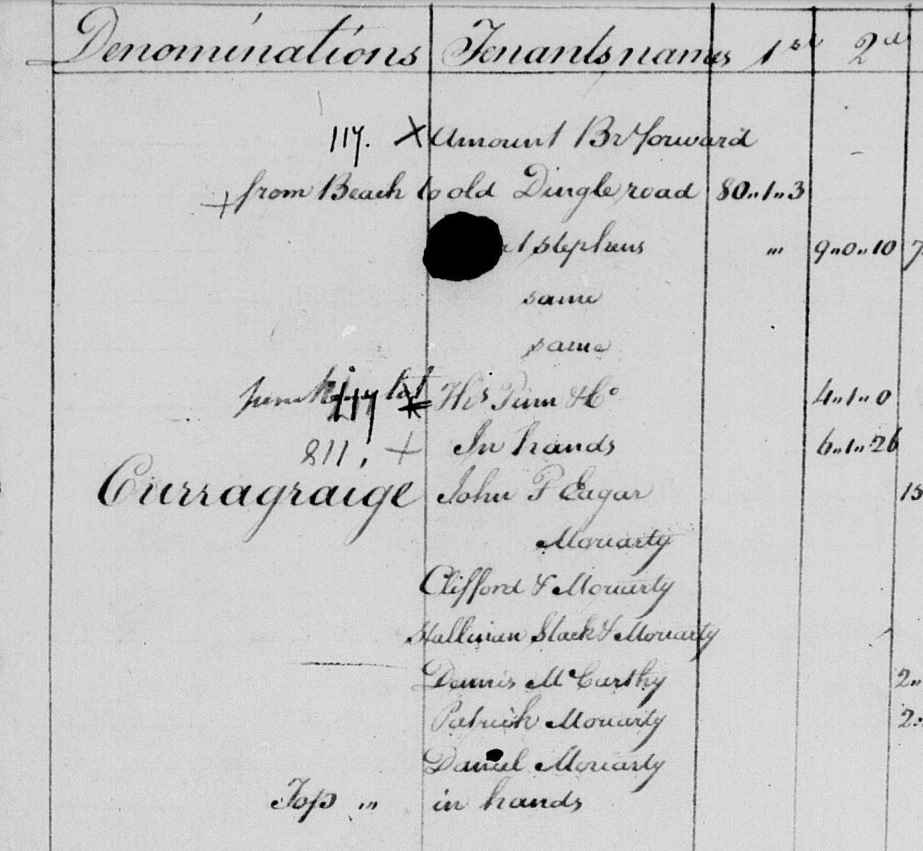 Denominations Tenants names 1st 2d
117. X Amount Brt forward
+ from Beach to old Dingle road 80..1..3
t Stephens " 9..0..10 7
same
same
117 Wm Finn & Co 4..1..0
211, + In hands 6..1..26
Curragraige John P Eagar 15
Moriarty
Clifford & Moriarty
Hallinan Slack & Moriarty
Dennis McCarthy 2..
Patrick Moriarty 2..
Daniel Moriarty
Top " in hands